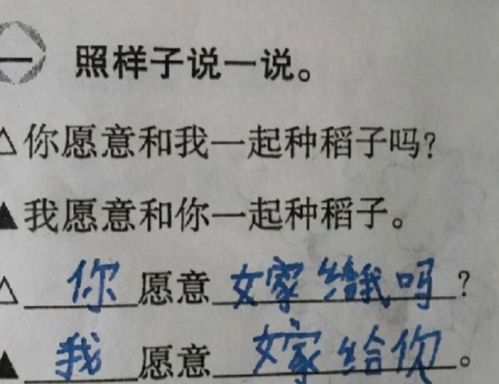 一 照样子说一说。
△你愿意和我一起种稻子吗?
▲我愿意和你一起种稻子。
△ 你 愿意 嫁给我吗 ?
▲ 我 愿意 嫁给你 。